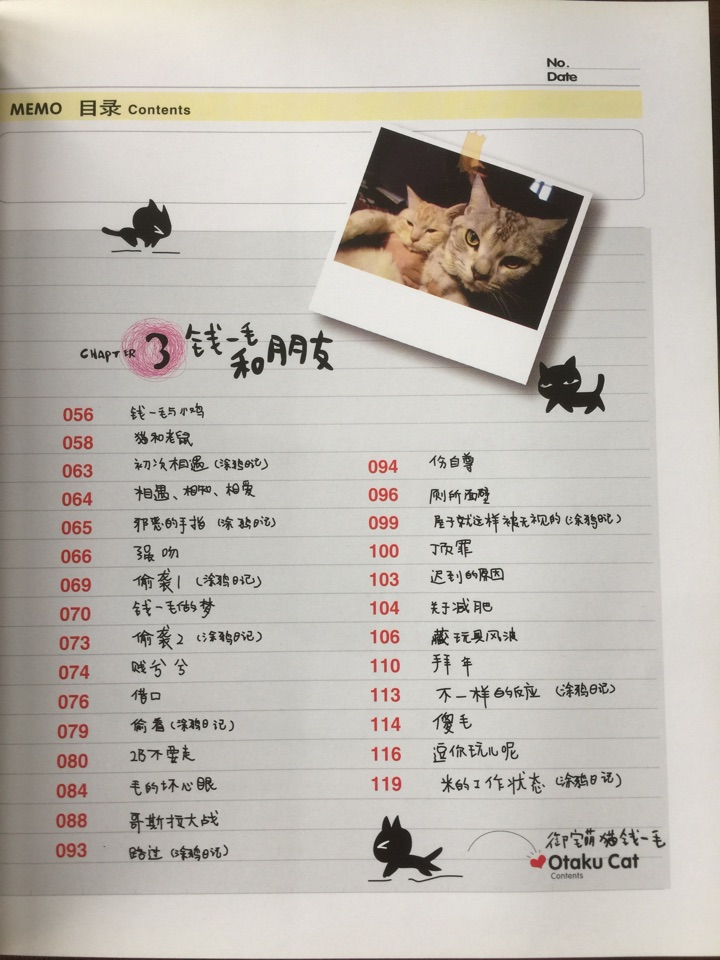 No.
Date
MEMO 目录 Contents
CHAPTER 3 钱一毛
和朋友
056 钱一毛与小鸡
058 猫和老鼠
063 初次相遇（涂鸦日记）
064 相遇、相知、相爱
065 邪恶的手指（涂鸦日记）
066 强吻
069 偷袭1（涂鸦日记）
070 钱一毛做的梦
073 偷袭2（涂鸦日记）
074 贱兮兮
076 借口
079 偷看（涂鸦日记）
080 2B不要走
084 毛的坏心眼
088 哥斯拉大战
093 路过（涂鸦日记）
094 伤自尊
096 厕所面壁
099 屋子就这样被无视的（涂鸦日记）
100 顶罪
103 迟到的原因
104 关于减肥
106 藏玩具风波
110 拜年
113 不一样的反应（涂鸦日记）
114 傻毛
116 逗你玩儿呢
119 米的工作状态（涂鸦日记）
御宅萌猫钱一毛
Otaku Cat
Contents